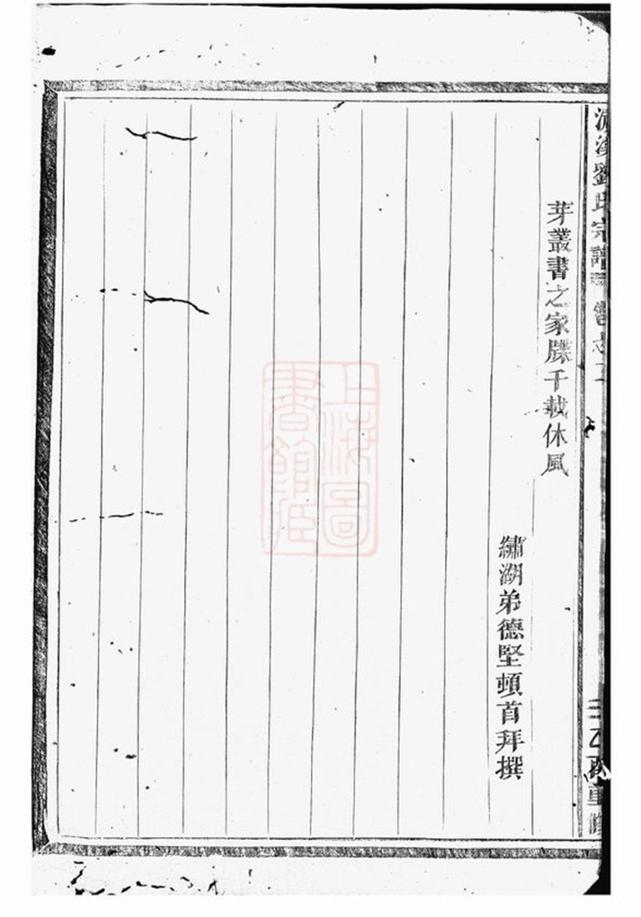 芽叢書之家牒千載休風
繡湖弟德堅頓首拜撰
劉氏宗譜
三 乙酉重修
上海圖書館藏